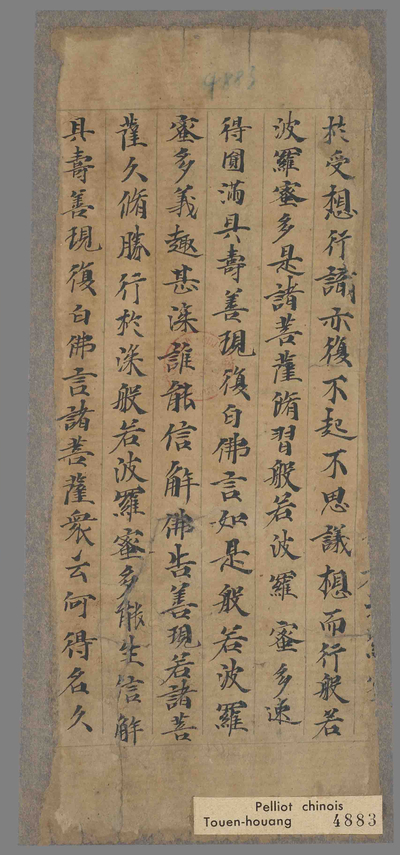 於受想行識亦復不起不思議想而行般若
波羅蜜多是諸菩薩脩習般若波羅蜜多速
得圓滿具壽善現復白佛言如是般若波羅
蜜多義趣甚深誰能信解佛告善現若諸菩
薩久脩勝行於深般若波羅蜜多能生信解
具壽善現復白佛言諸菩薩衆云何得名久
4883
Pelliot chinois
Touen-houang 4883